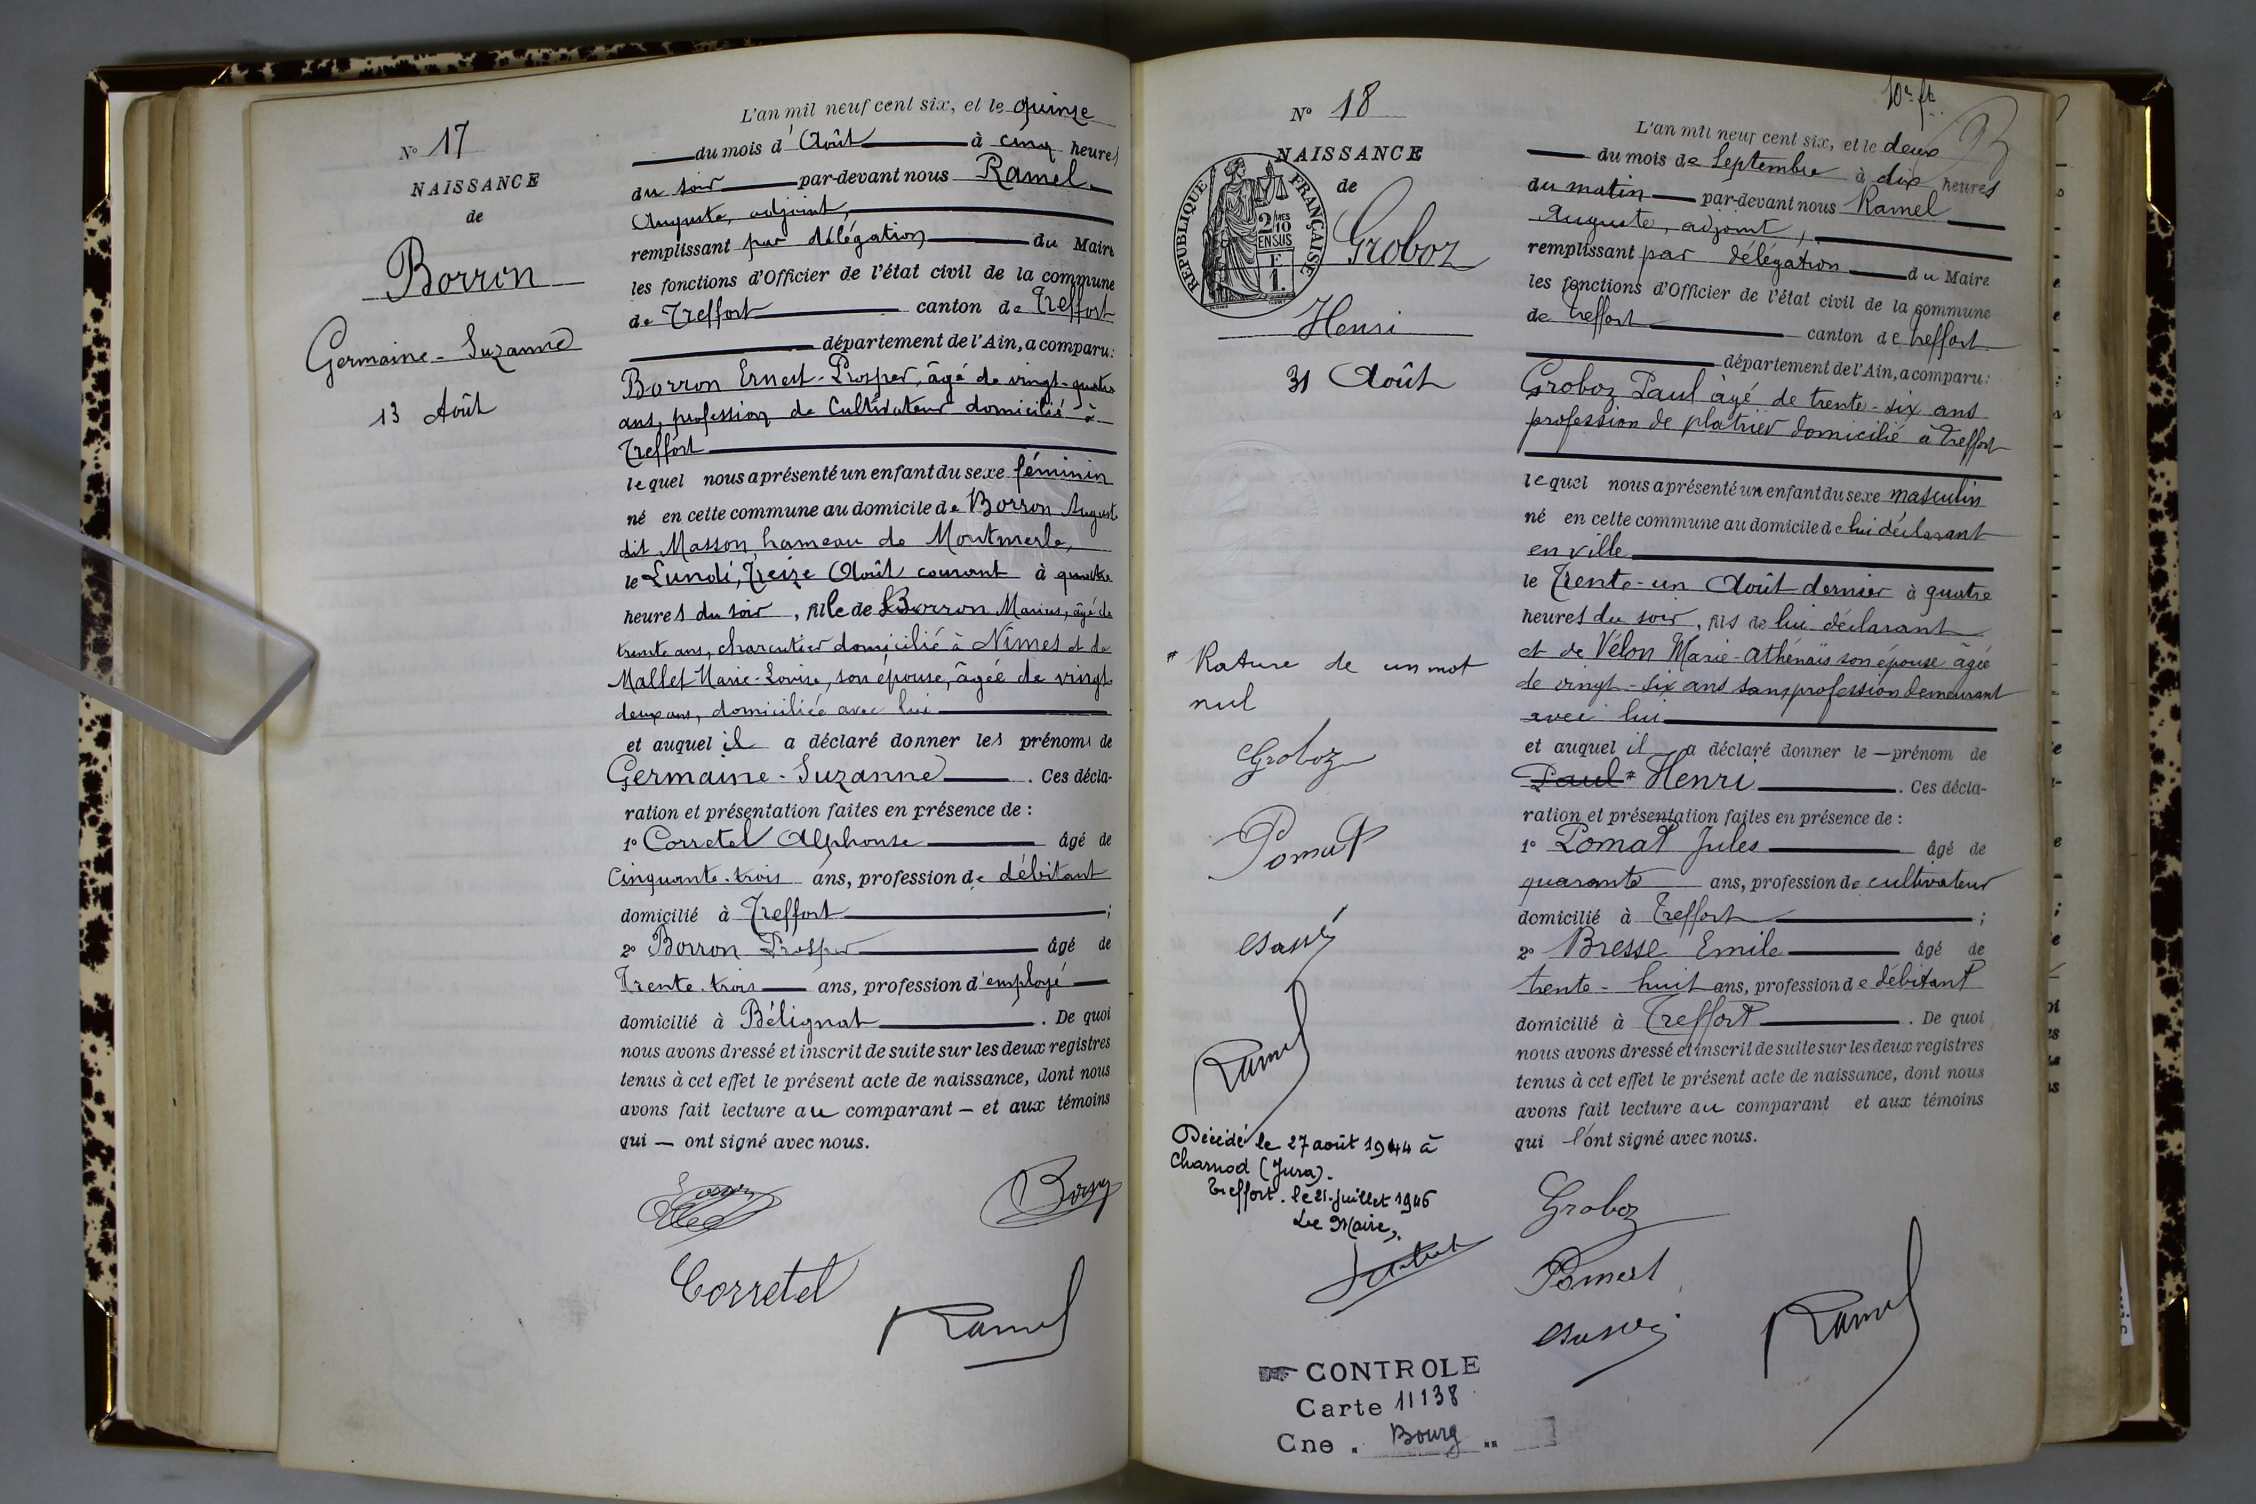 N° 17
NAISSANCE
de
Borron
Germaine-Suzanne
13 Août
L'an mil neuf cent six, et le quinze
du mois d'Août à cinq heures
du soir par-devant nous Ramel
Auguste, adjoint,
remplissant par délégation du Maire
les fonctions d'Officier de l'état civil de la commune
de Treffort canton de Treffort
département de l'Ain, a comparu:
Borron Ernest-Prosper, âgé de vingt-quatre
ans, profession de Cultivateur domicilié à
Treffort
lequel nous a présenté un enfant du sexe féminin
né en cette commune au domicile de Borron Auguste
dit Masson, hameau de Montmerle,
le Lundi, Treize Août courant à quatre
heures du soir, fille de Borron Marius, âgé de
trente ans, charcutier domicilié à Nîmes et de
Mallet Marie-Louise, son épouse, âgée de vingt
deux ans, domiciliée avec lui
et auquel il a déclaré donner les prénoms de
Germaine-Suzanne. Ces décla-
ration et présentation faites en présence de :
1° Corretel Alphonse âgé de
Cinquante-trois ans, profession de débitant
domicilié à Treffort ;
2° Borron Prosper âgé de
Trente-trois ans, profession d'employé
domicilié à Bélignat. De quoi
nous avons dressé et inscrit de suite sur les deux registres
tenus à cet effet le présent acte de naissance, dont nous
avons fait lecture au comparant — et aux témoins
qui — ont signé avec nous.
Borron
Corretel
Ramel
N° 18
NAISSANCE
de
RÉPUBLIQUE FRANÇAISE
2/10 MES
EN SUS
F
1.
Groboz
Henri
31 Août
* Rature de un mot
nul
Groboz
Pomat
Ramel
Décédé le 27 août 1944 à
Charnod (Jura).
Treffort. le 21 juillet 1946
Le Maire,
CONTROLE
Carte 11138
Cne. Bourg
L'an mil neuf cent six, et le deux
du mois de Septembre à dix heures
du matin par-devant nous Ramel
Auguste, adjoint,
remplissant par délégation du Maire
les fonctions d'Officier de l'état civil de la commune
de Treffort canton de Treffort
département de l'Ain, a comparu:
Groboz Paul âgé de trente-six ans
profession de platrier domicilié à Treffort
lequel nous a présenté un enfant du sexe masculin
né en cette commune au domicile de lui déclarant
en ville
le Trente-un Août dernier à quatre
heures du soir, fils de lui déclarant
et de Vélon Marie-athénaïs son épouse âgée
de vingt-six ans sans profession demeurant
avec lui
et auquel il a déclaré donner le — prénom de
Paul* Henri. Ces décla-
ration et présentation faites en présence de :
1° Pomat Jules âgé de
quarante ans, profession de cultivateur
domicilié à Treffort ;
2° Bresse Emile âgé de
trente-huit ans, profession de débitant
domicilié à Treffort. De quoi
nous avons dressé et inscrit de suite sur les deux registres
tenus à cet effet le présent acte de naissance, dont nous
avons fait lecture au comparant et aux témoins
qui l'ont signé avec nous.
Groboz
Pomat
Ramel